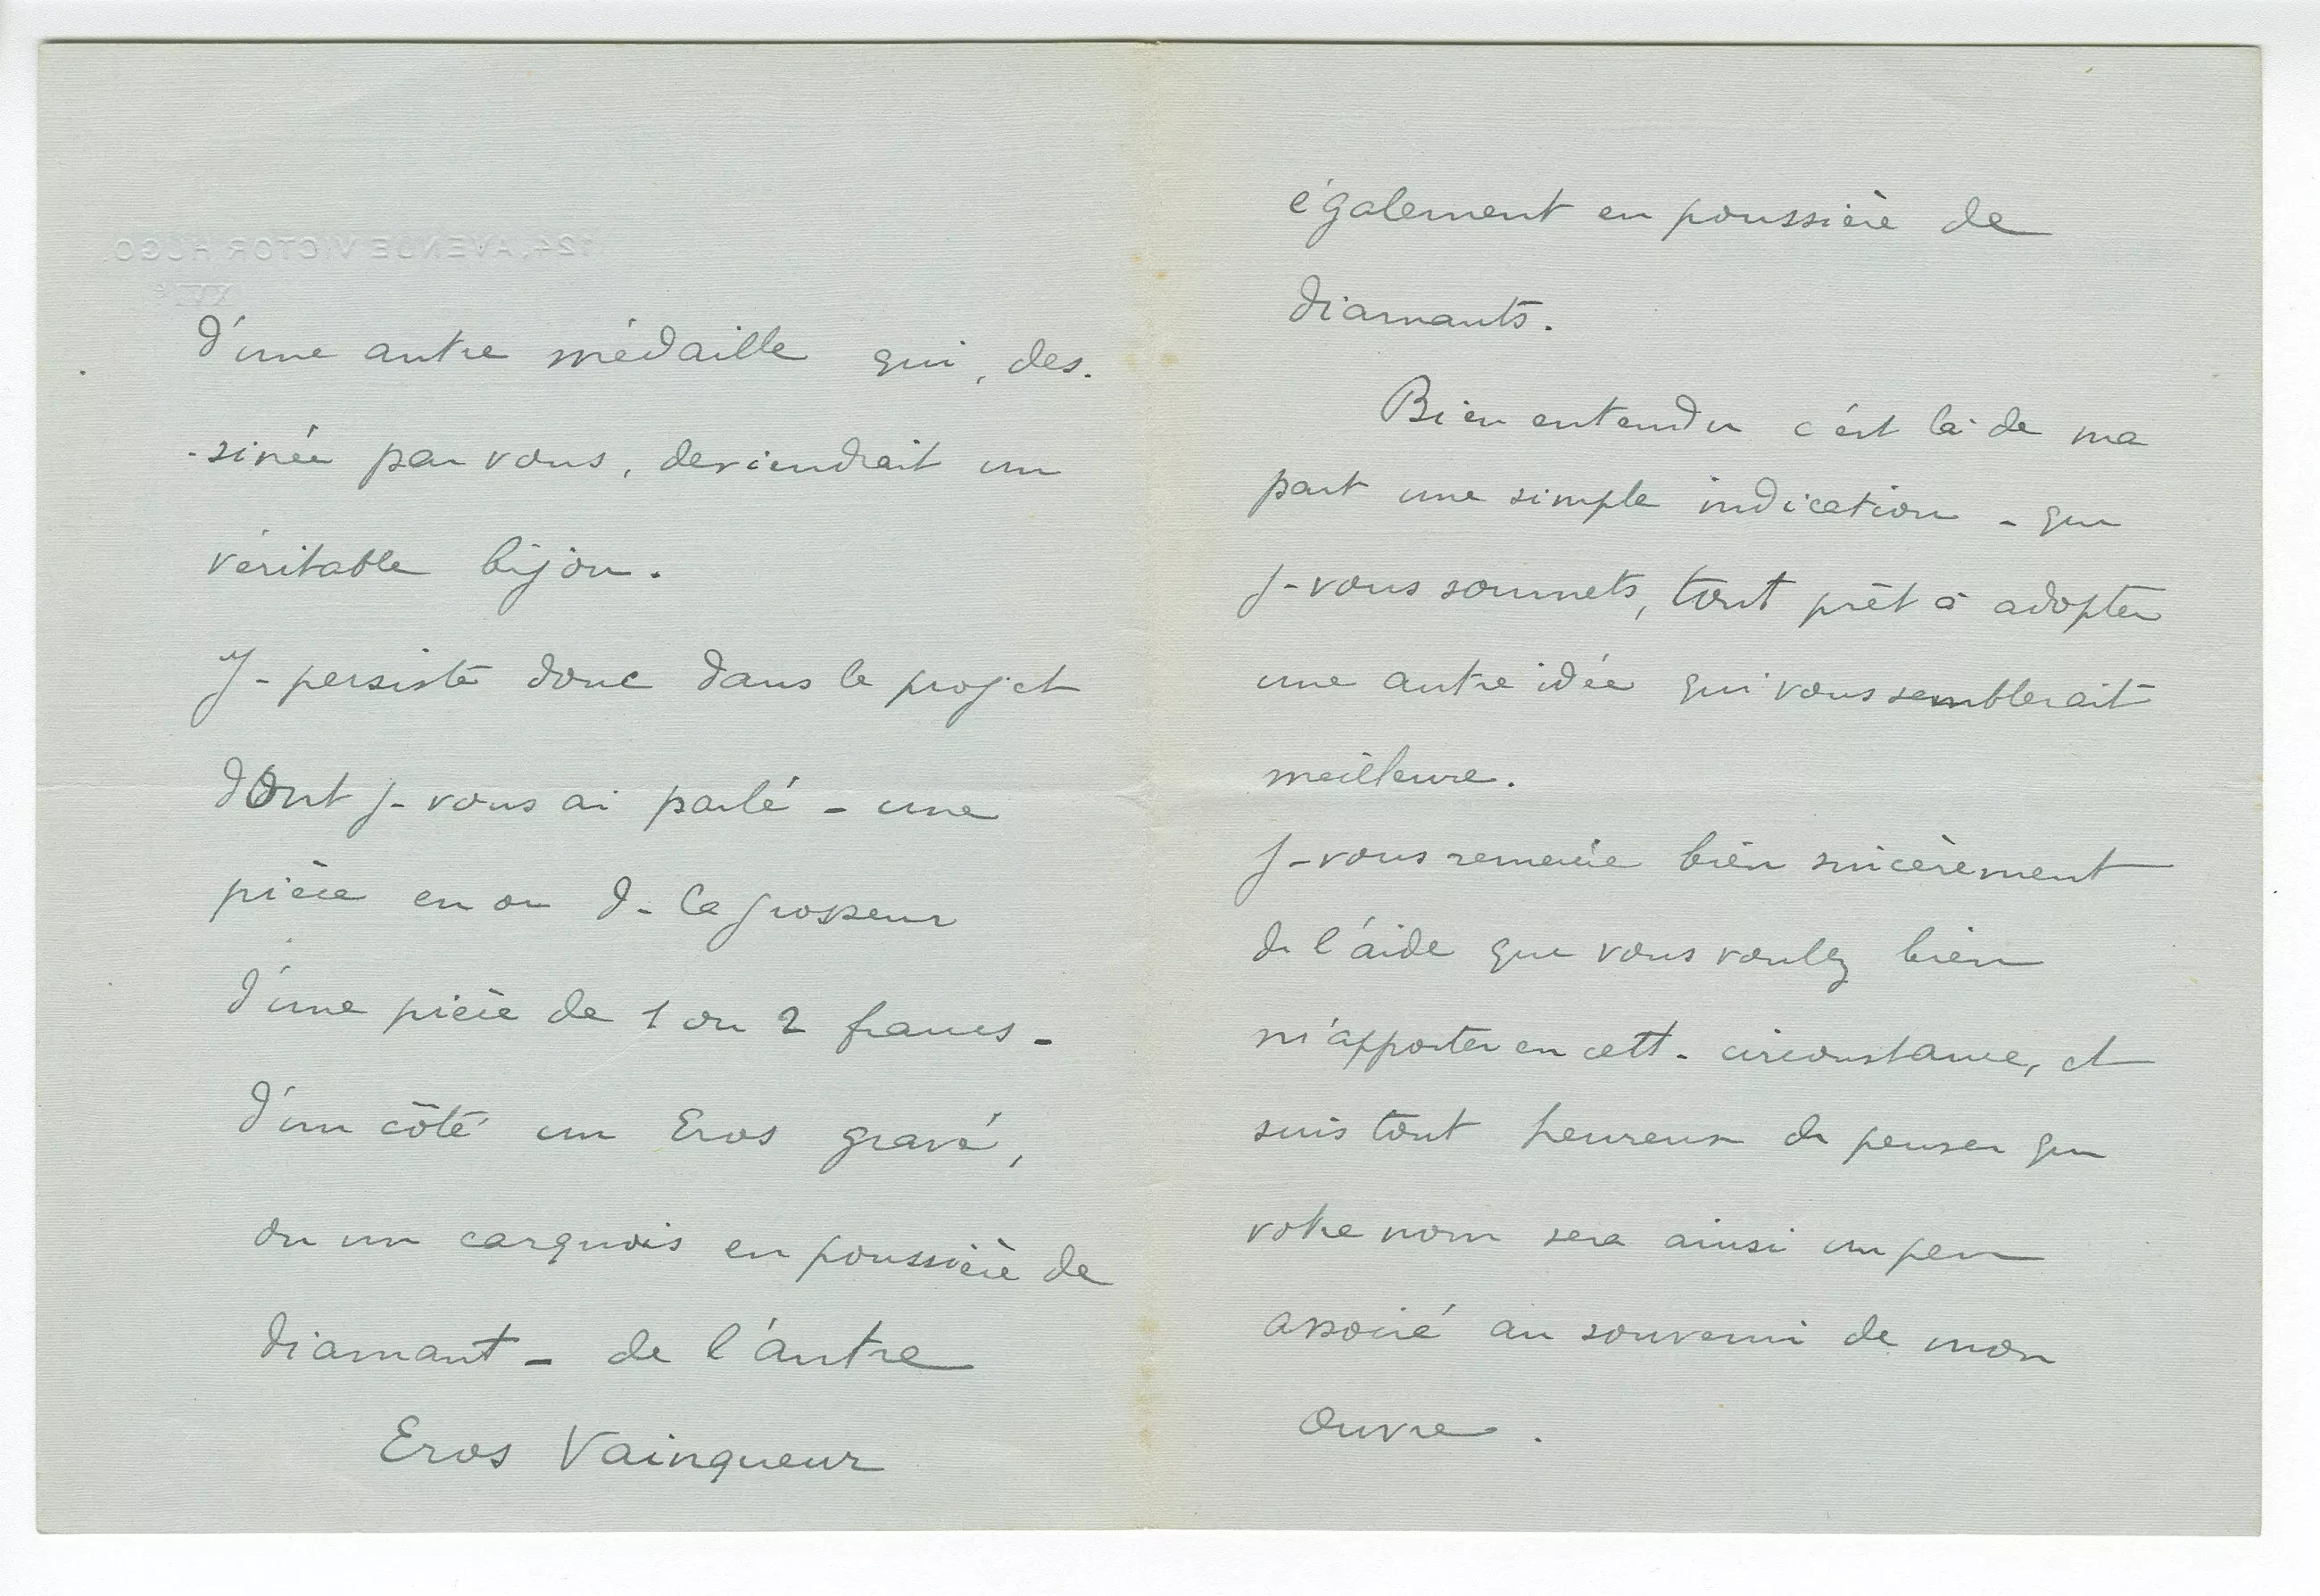 124, AVENUE VICTOR HUGO.
XVIe
d'une autre médaille qui, des-
-sinée par vous, deviendrait un
véritable bijou.
Je persiste donc dans le projet
dont je vous ai parlé - une
pièce en or de la grosseur
d'une pièce de 1 ou 2 francs -
d'un côté un Eros gravé,
ou un carquois en poussière de
diamant - de l'autre
Eros Vainqueur
également en poussière de
diamants.
Bien entendu c'est là de ma
part une simple indication - que
je vous soumets, tout prêt à adopter
une autre idée qui vous semblerait
meilleure.
Je vous remercie bien sincèrement
de l'aide que vous voulez bien
m'apporter en cette circonstance, et
suis tout heureux de penser que
votre nom sera ainsi un peu
associé au souvenir de mon
œuvre.